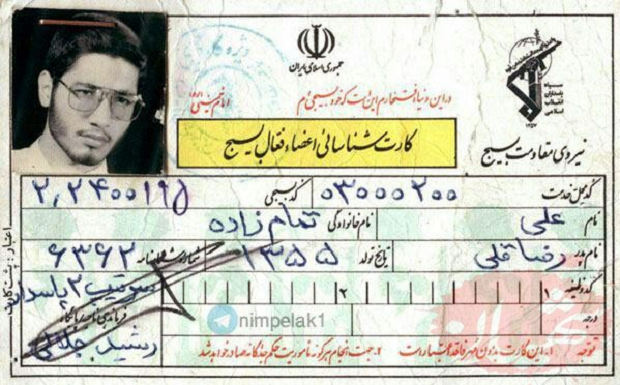 جمهوری اسلامی ایران
سپاه
پاسداران
انقلاب
اسلامی
در این دنیا افتخارم این است که خود بسیجی‌ام
امام خمینی
نیروی مقاومت بسیج
کارت شناسائی اعضاء فعال بسیج
کد محل خدمت ۰۳۰۰۰۲۰۰ کد بسیجی
نام علی نام خانوادگی تمام زاده
نام پدر رضا قلی تاریخ تولد ۱۳۵۵ شماره شناسنامه ۶۳۶۲
کد وظیفه ۱ ۲
سرتیپ ۲ پاسدار
درجه
nimpelak1
توجه ۱- این کارت بدون مهر فاقد اعتبار است ۲- جهت انجام هرگونه مأموریت حکم جداگانه صادر خواهد شد
اعتبار : پشت کارت